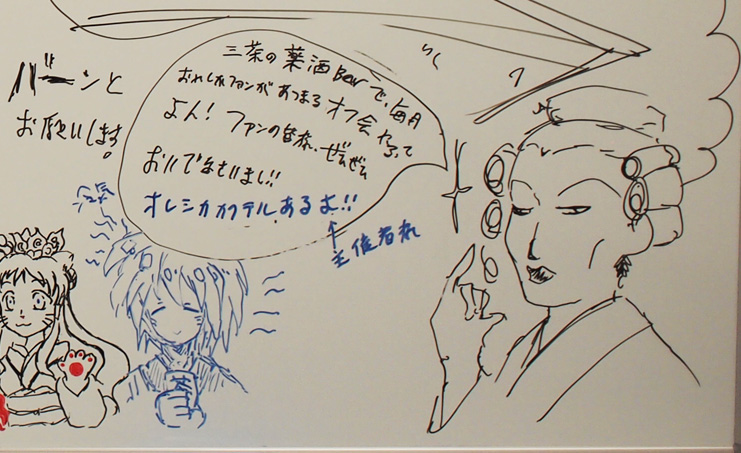 バーンと
お願いします。
三茶の薬酒Barで、毎月
おれしかファンがあつまるオフ会やるって
よん！ファンの皆様、ぜひぜひ
おいでなさいまし!!
オレシカカクテルあるお!!
主催者